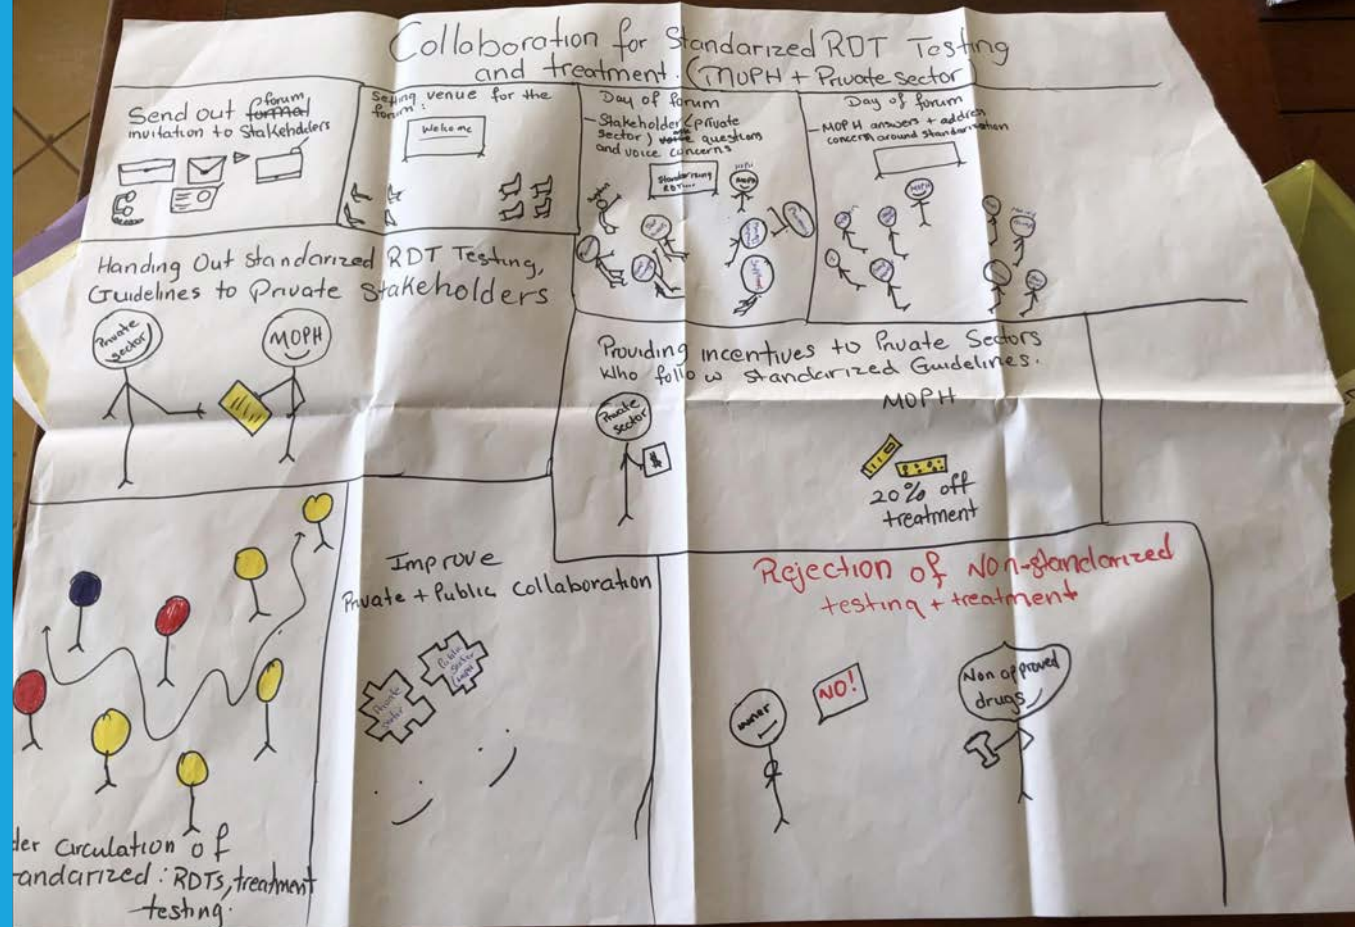 Collaboration for Standarized RDT Testing
and treatment. (MOPH + Private sector)
Send out formal forum
invitation to Stakeholders
Setting venue for the
forum:
Welcome
Day of forum
- Stakeholder (private
sector) questions
and voice concerns
Standarizing
RDT....
MOPH
MOPH
Day of forum
- MOPH answers + address
concern around standarisation
MOPH
Handing Out Standarized RDT Testing,
Guidelines to Private Stakeholders
Private
sector
MOPH
Providing incentives to Private Sectors
Who follow standarized Guidelines.
Private
sector
$
MOPH
20% off
treatment
der circulation of
andarized : RDTs, treatment
testing.
Improve
Private + Public Collaboration
Private
sector
Public
sector
Rejection of Non-standarized
testing + treatment
owner
NO!
Non approved
drugs